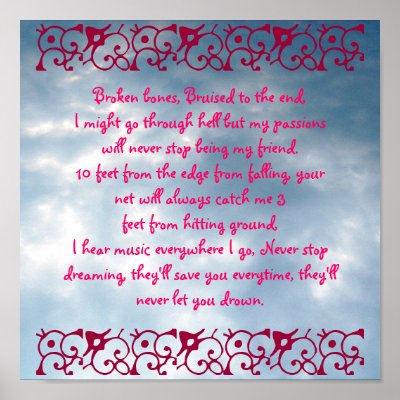 Broken bones, Bruised to the end,
I might go through hell but my passions
will never stop being my friend.
10 feet from the edge from falling, your
net will always catch me 3
feet from hitting ground,
I hear music everywhere I go, Never stop
dreaming, they'll save you everytime, they'll
never let you drown.